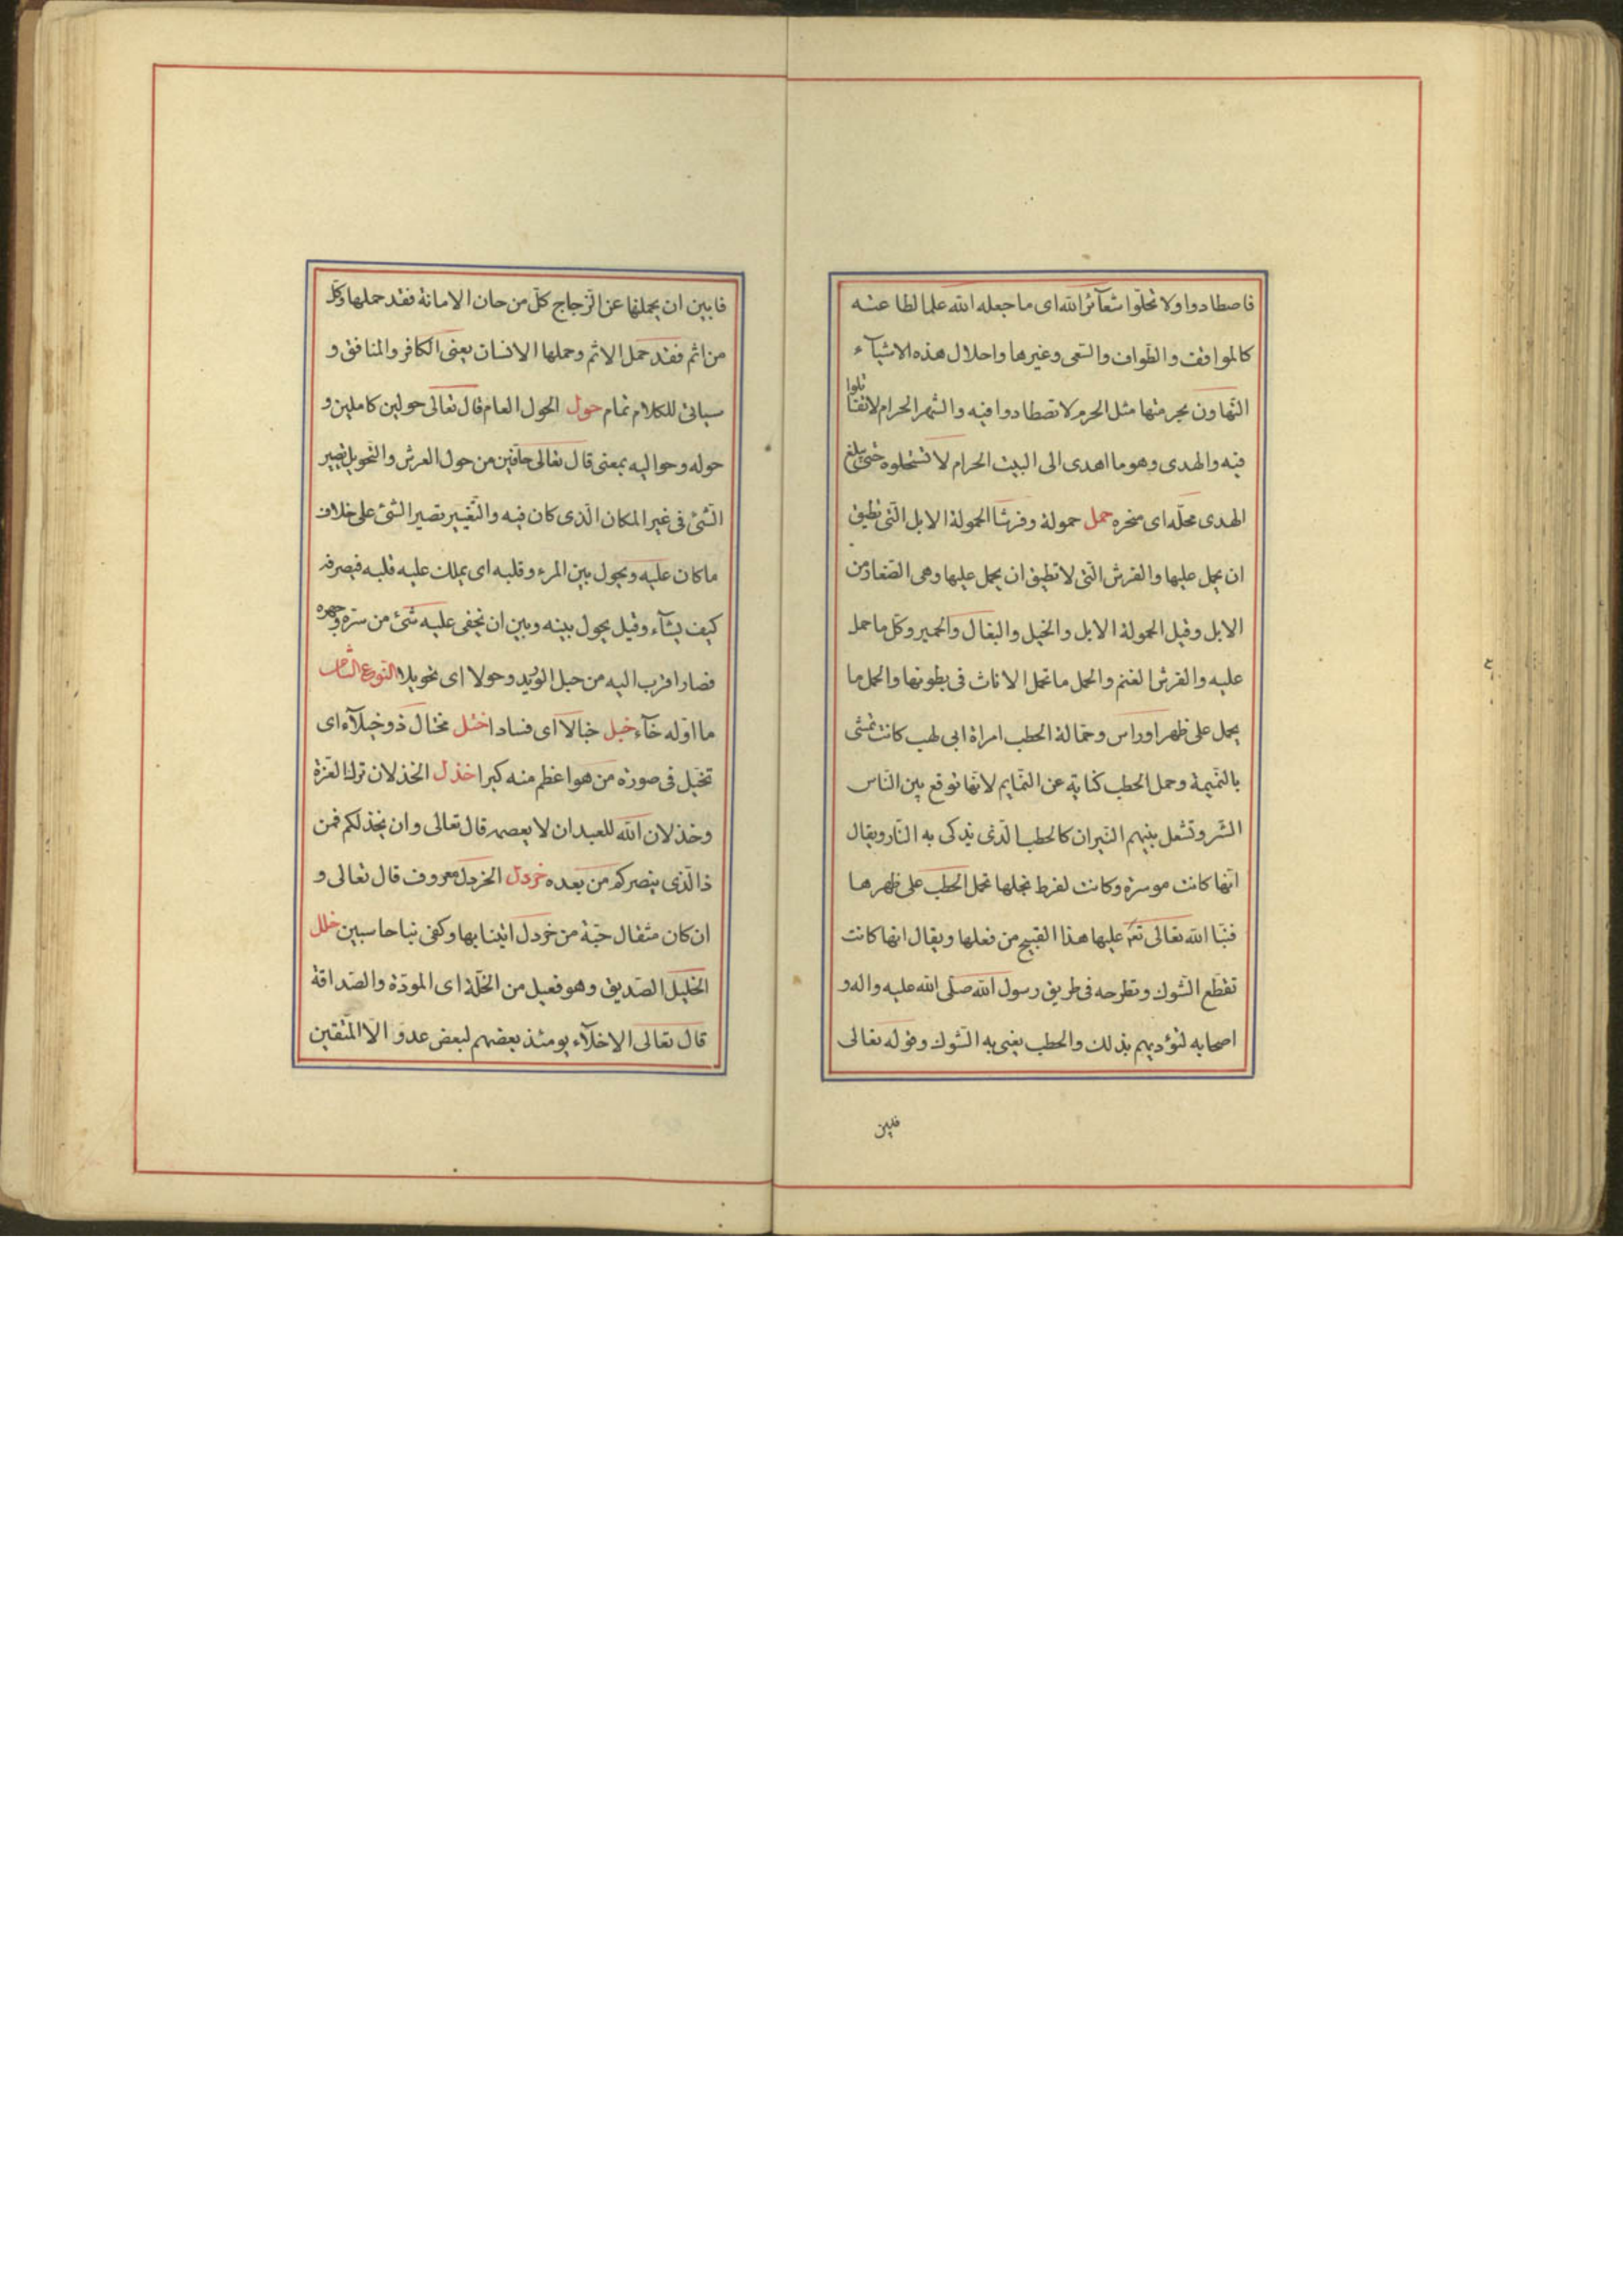 فاصطادوا ولا تحلّوا شعآئر الله اى ما جعله الله علما لطاعته
كالمواقف والطّواف والسّعى وغيرها واحلال هذه الاشيآء
التّهاون بحرمتها مثل الحرم لا تصطادوا فيه والشهر الحرام لا تقتلوا
فيه والهدى وهو ما اهدى الى البيت الحرام لا تستحلوه حتى يبلغ
الهدى محلّه اى منحره حمل حمولة وفرشا الحمولة الابل الّتى تطيق
ان يحمل عليها والفرش الّتى لا تطيق ان يحمل عليها وهى الصّغار من
الابل وقيل الحمولة الابل والخيل والبغال والحمير وكلّ ما حمل
عليه والفرش الغنم والحمل ما تحمل الاناث فى بطونها والحمل ما
يحمل على ظهر او راس وحمّالة الحطب امراة ابى لهب كانت تمشى
بالنّميمة وحمل الحطب كناية عن النّمايم لانّها توقع بين النّاس
الشّر وتشعل بينهم النّيران كالحطب الّذى تذكى به النّار ويقال
انّها كانت موسرة وكانت لفرط بخلها تحمل الحطب على ظهرها
فنبّا الله تعالى عليها هذا القبيح من فعلها ويقال انها كانت
تقطّع الشّوك وتطرحه فى طريق رسول الله صلّى الله عليه واله و
اصحابه لتؤديهم بذلك والحطب يعنى به الشّوك وقوله تعالى
فابين
فابين ان يحملنها عن الزّجاج كلّ من خان الامانة فقد حملها وكلّ
من اثم فقد حمل الاثم وحملها الانسان يعنى الكافر والمنافق و
سياتى للكلام تمام حول الحول العام قال تعالى حولين كاملين و
حوله وحواليه بمعنى قال تعالى حافّين من حول العرش والتّحويل تصيير
الشّئ فى غير المكان الّذى كان فيه والتّغيير تصيير الشّئ على خلاف
ما كان عليه ويحول بين المرء وقلبه اى يملك عليه قلبه فيصرفه
كيف يشآء وقيل يحول بينه وبين ان يخفى عليه شئ من سرّه وجهره
فصار اقرب اليه من حبل الوريد وحولا اى تحويلا النّوع الثامن
ما اوّله خآء خبل خبالا اى فسادا ختل مختال ذو خيلآء اى
تخيّل فى صورة من هو اعظم منه كبرا خذل الخذلان ترك العزة
وخذلان الله للعبد ان لا يعصمه قال تعالى وان يخذلكم فمن
ذا الّذى ينصركم من بعده خردل الخردل معروف قال تعالى و
ان كان مثقال حبّة من خردل اتينا بها وكفى بنا حاسبين خلل
الخليل الصّديق وهو فعيل من الخلّة اى المودّة والصّداقة
قال تعالى الاخلآء يومئذ بعضهم لبعض عدوّ الّا المتّقين